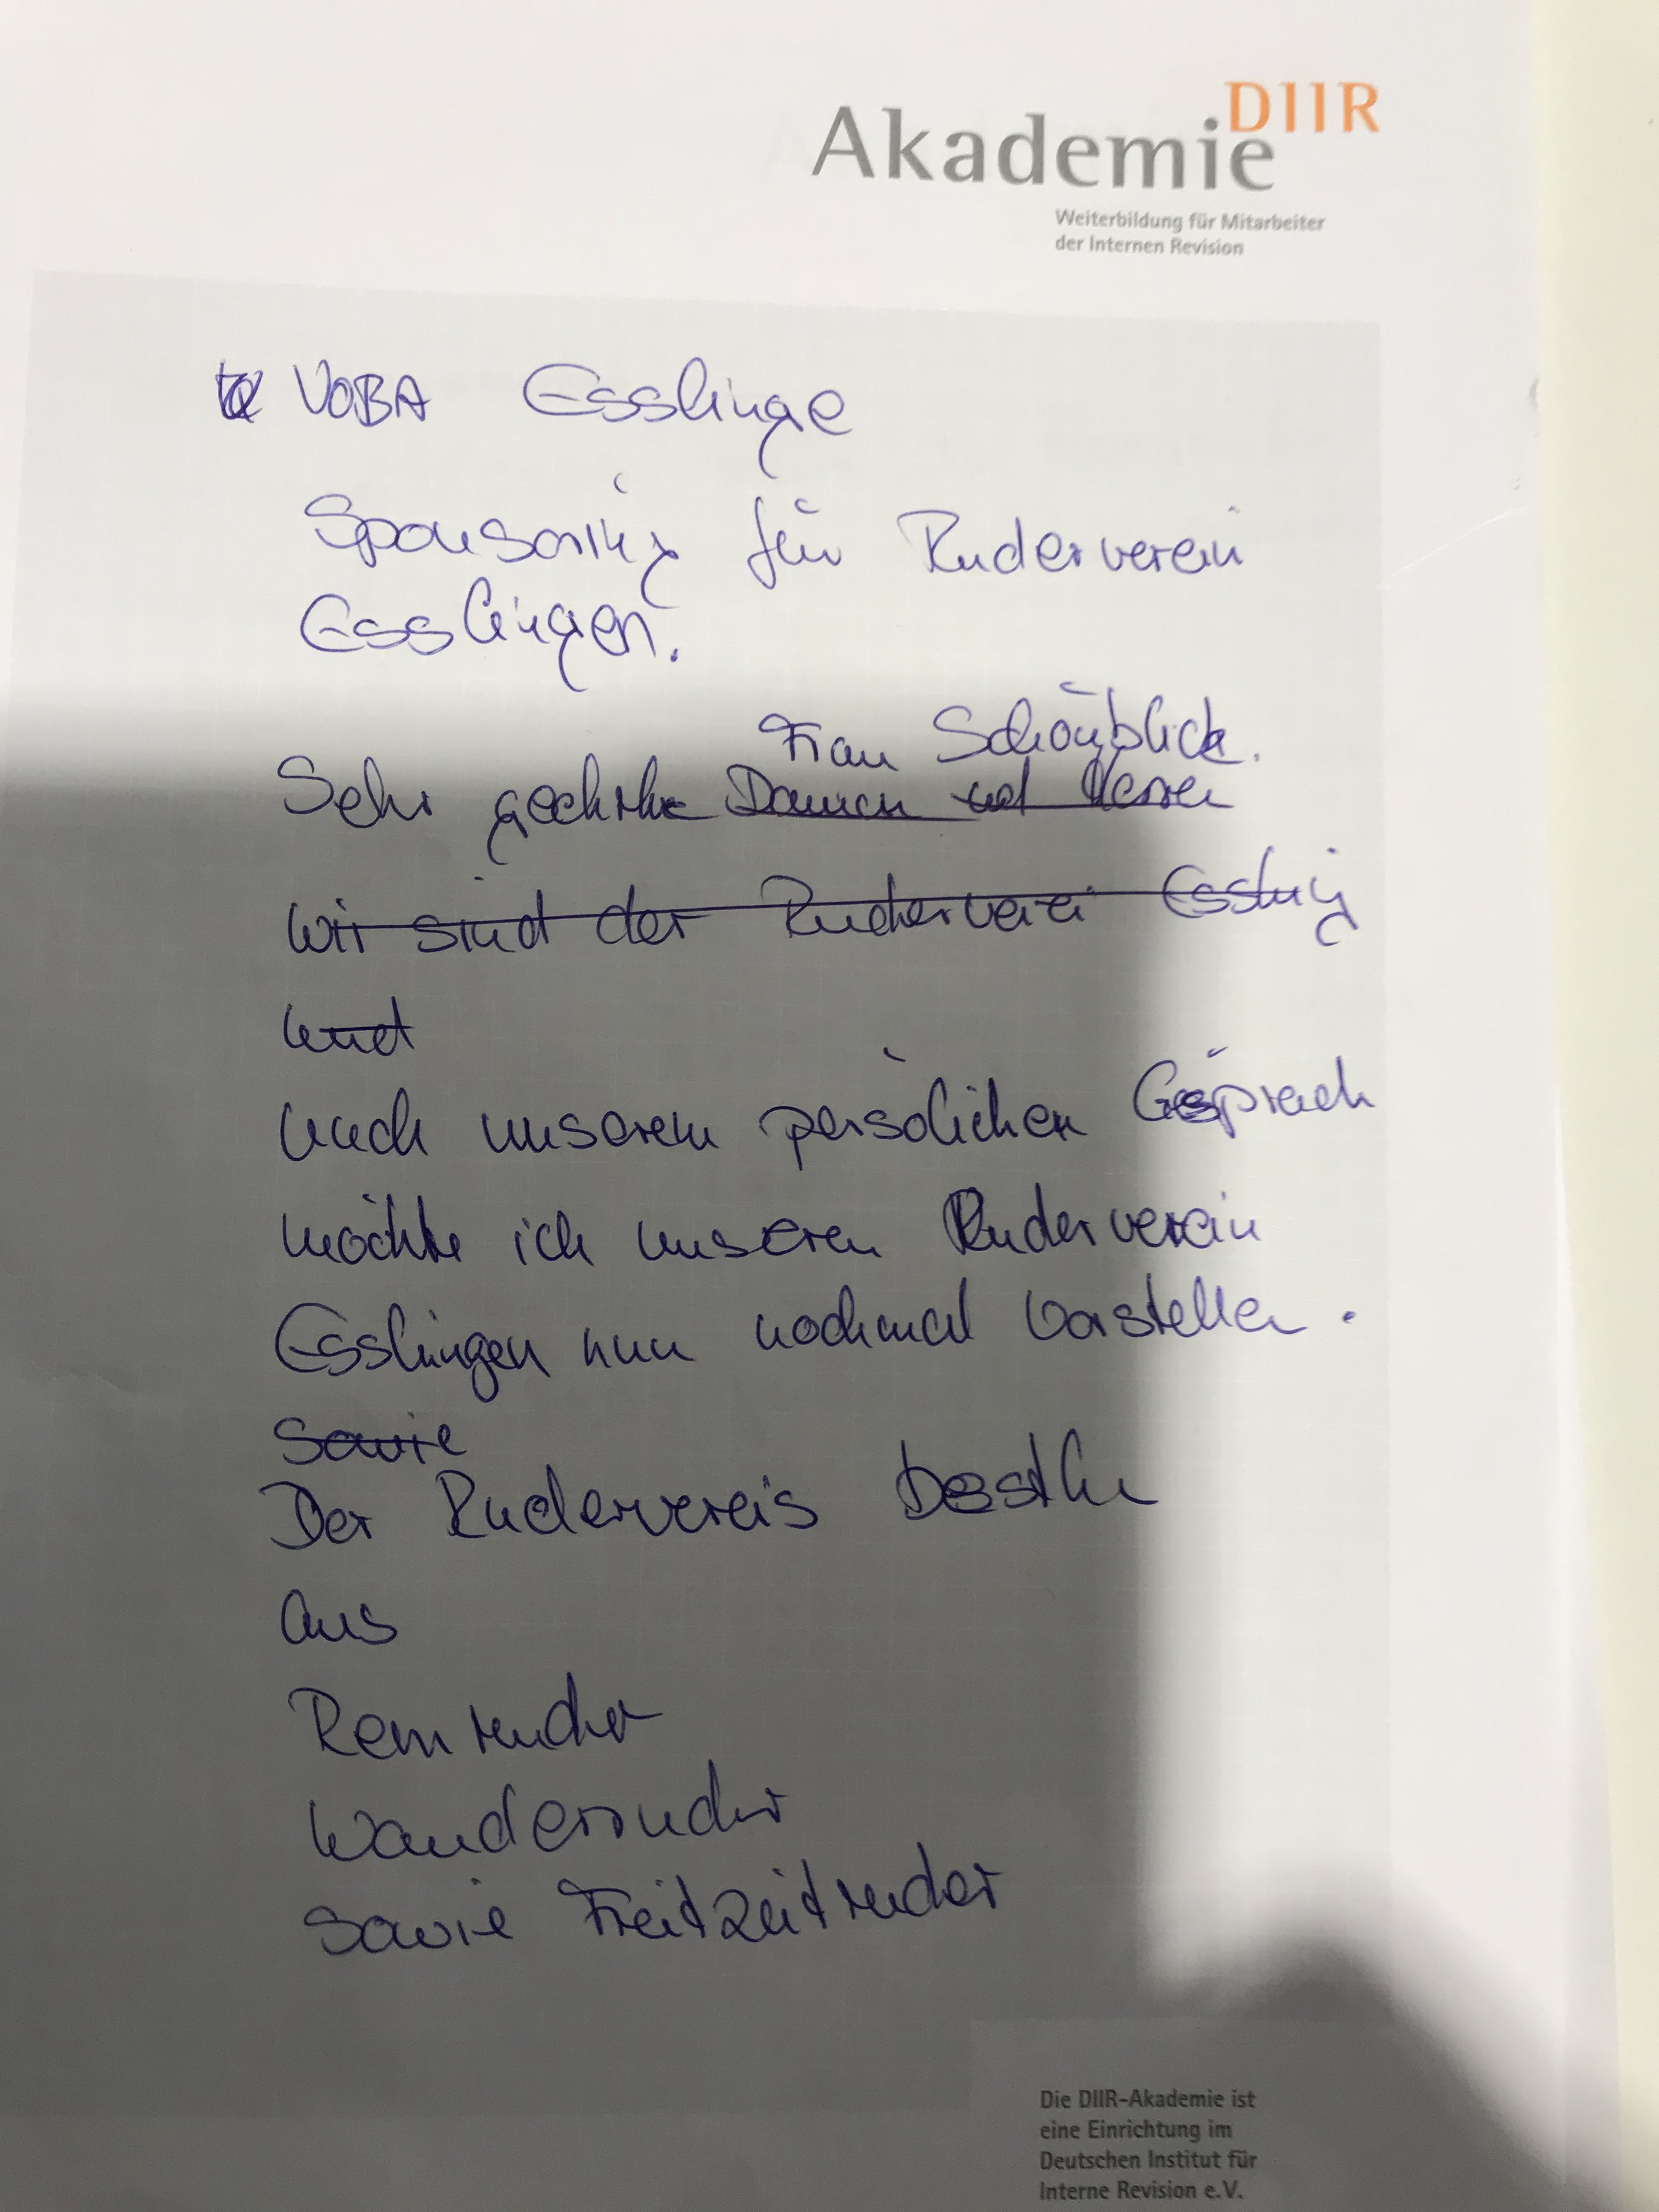 DIIR
Akademie
Weiterbildung für Mitarbeiter
der Internen Revision
VOBA Esslinge
Sponsoring für Ruderverein
Esslingen.
Frau Schönblick.
Sehr geehrte Damen und Herren
Wir sind der Ruderverei Essling
und
nach unserem persölichen Gespräch
möchte ich unseren Ruderverein
Esslingen nun nochmal vorstellen.
Sowie
Der Rudervereis besteht
aus
Rennruder
Wanderruder
sowie Freitzeitruder
Die DIIR-Akademie ist
eine Einrichtung im
Deutschen Institut für
Interne Revision e.V.